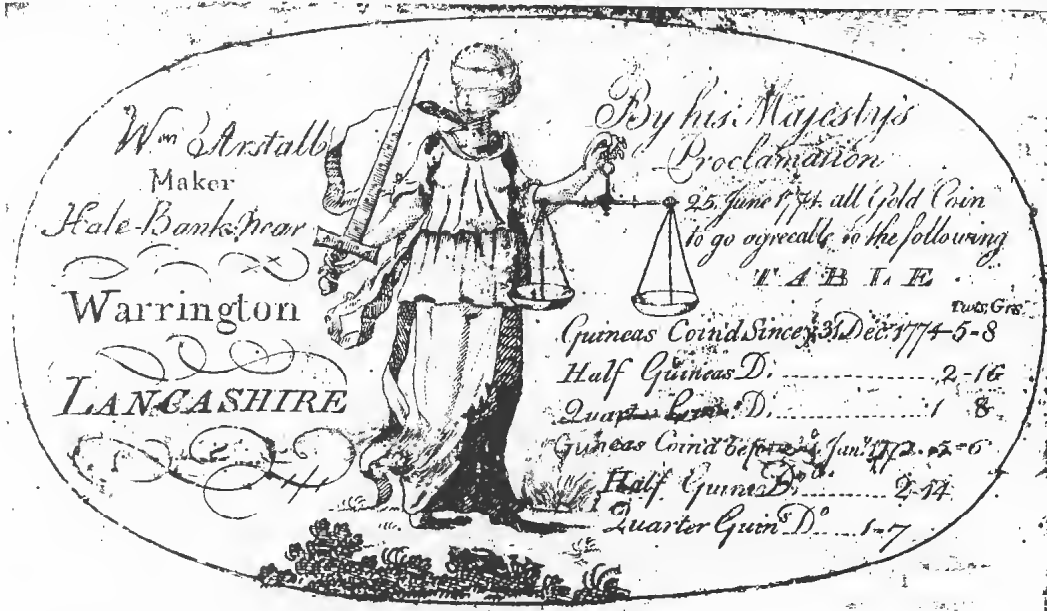 Wm Arstall
Maker
Hale-Bank near
Warrington
LANCASHIRE
By his Majesty's
Proclamation
25, June 1774 all Gold Coin
to go agreeable to the following
TABLE
Dwts, Grs
Guineas Coin'd Since ye 31 Decr 1774-5-8
Half Guineas Do. 2-16
Quarter Do. 1 8
Guineas Coin'd before Jany. 1772. 5-6
Half Guineas Do. 2-14
Quarter Guins Do 1-7